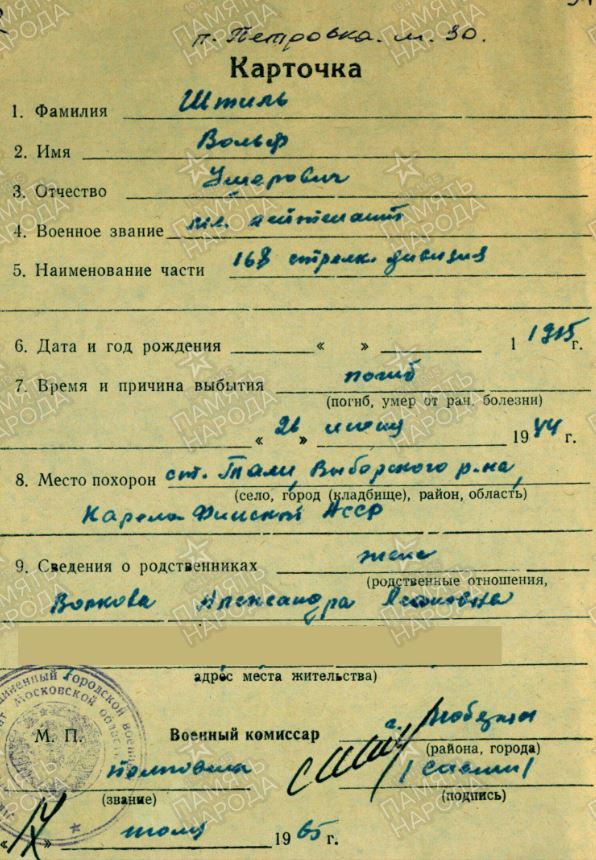 п. Петровка. м. 30.
Карточка
1. Фамилия Штиль
2. Имя Вольф
3. Отчество Умерович
4. Военное звание мл. лейтенант
5. Наименование части 168 стрелк. дивизия
6. Дата и год рождения « » 1 1915 г.
7. Время и причина выбытия погиб
(погиб, умер от ран, болезни)
« 26 » июня 1944 г.
8. Место похорон ст. Тали, Выборского р-на,
(село, город (кладбище), район, область)
Карело-Финской АССР
9. Сведения о родственниках жена
(родственные отношения,
Волкова Александра
адрес места жительства)
М. П. Военный комиссар г. Люберцы
(района, города)
полковник
(звание) (подпись)
1965 г.
ПАМЯТЬ НАРОДА